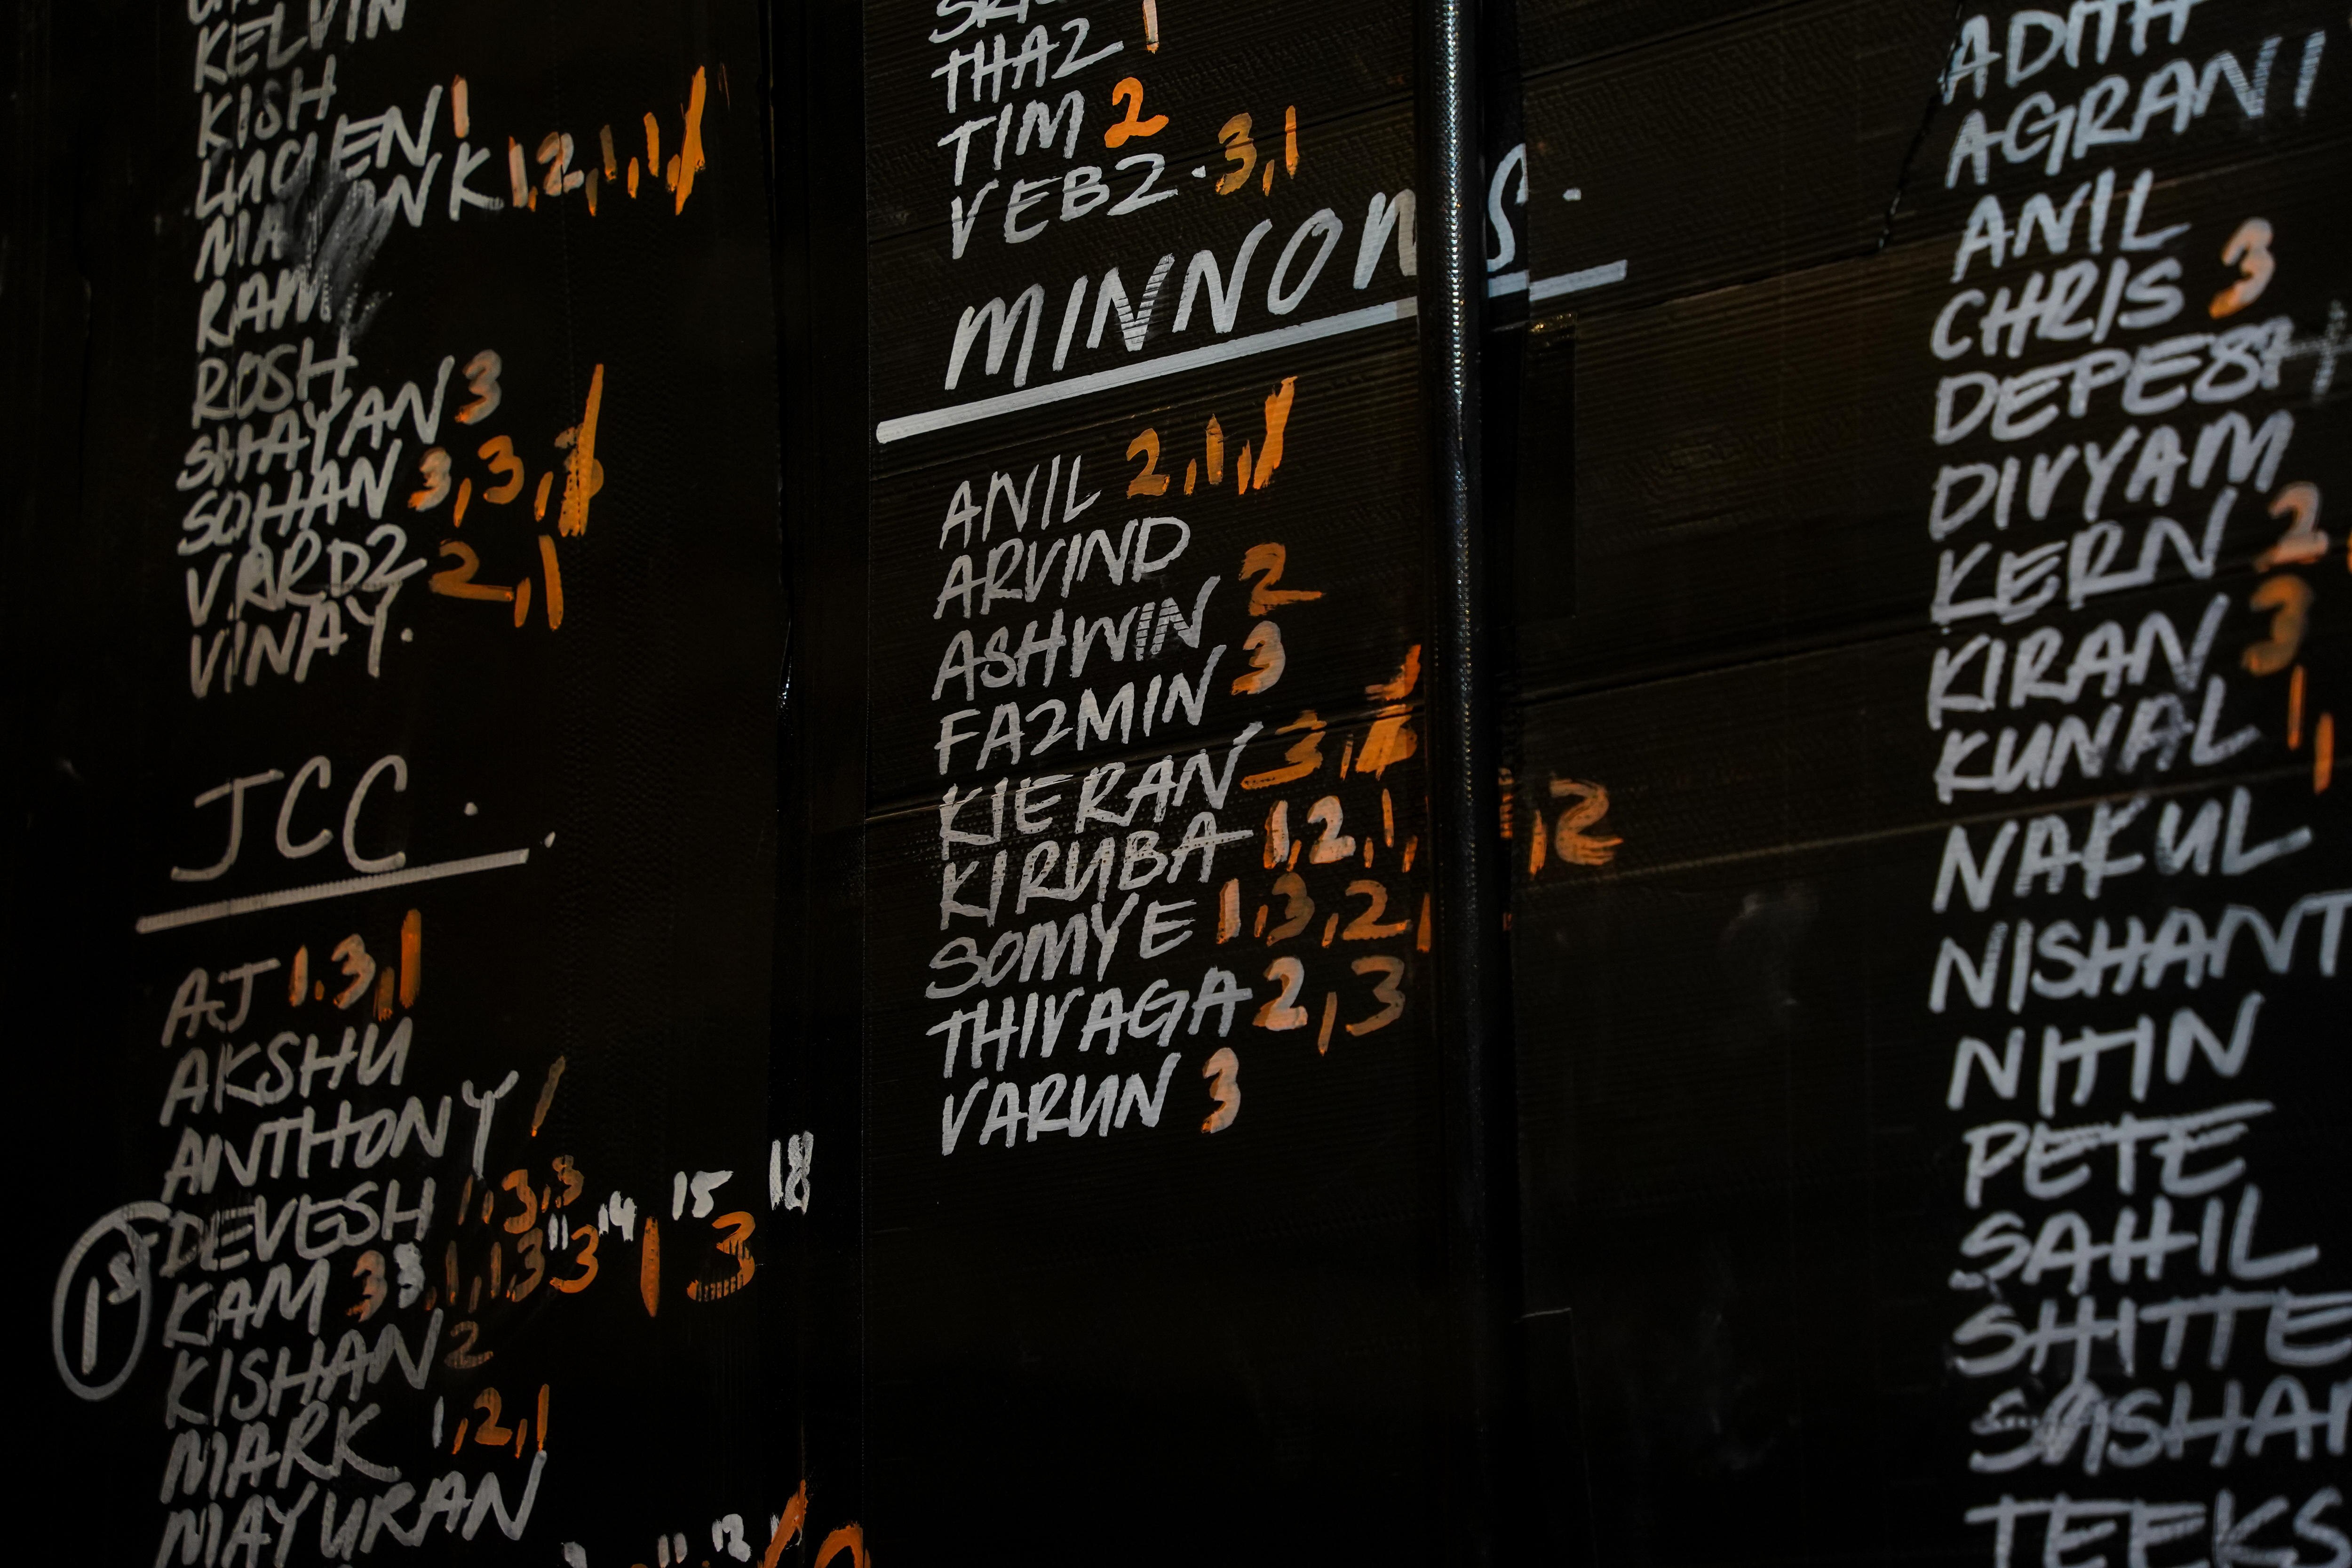 KELVIN
KISH
1
RAM
ROSH
SHAYAN 3
SOHAN 3,3,
VARDZ 2,1
VINAY.
JCC.
AJ 1.3,1
AKSHU
ANTHONY 1
DEVESH 1,3,3
1st KAM 3 3,1,1,3 11 3 14 1 15 3 18
KISHAN 2
MARK 1,2,1
MAYURAN
THAZ 1
TIM 2
VEBZ.3,1
MINNOWS.
ANIL 2,1,
ARVIND
ASHWIN 2
FAZMIN 3
KIERAN 3,
KIRUBA 1,2,1, ,2
SOMYE 1,3,2,
THIVAGA 2,3
VARUN 3
ADITH
AGRANI
ANIL
CHRIS 3
DEPESH
DIVYAM
KERN 2
KIRAN 3
KUNAL 1,
NAKUL
NISHANT
NITIN
PETE
SAHIL
TEEKS